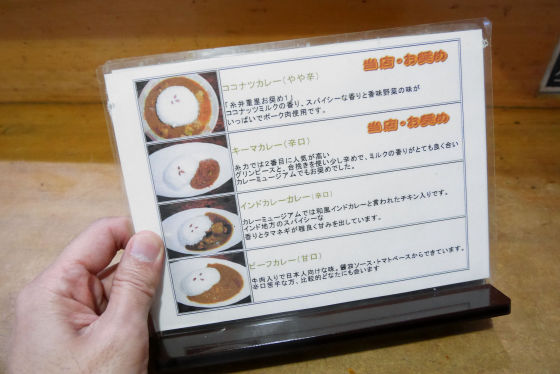 当店・お奨め
ココナツカレー(やや辛)
「糸井重里お奨め！」
ココナッツミルクの香り、スパイシーな香りと香味野菜の味が
いっぱいでポーク肉使用です。
当店・お奨め
キーマカレー(辛口)
糸力では２番目に人気が高い
グリンピースと、合挽きを使い少し辛めで、ミルクの香りがとても良く合い
カレーミュージアムでもお奨めでした。
インドカレーカレー(辛口)
カレーミュージアムでは和風インドカレーと言われたチキン入りです。
インド地方のスパイシーな
香りとタマネギが程良く甘みを出しています。
ビーフカレー(甘口)
牛肉入りで日本人向けな味。醤油ソース・トマトベースからできています。
辛口苦手な方、比較的どなたにも合います